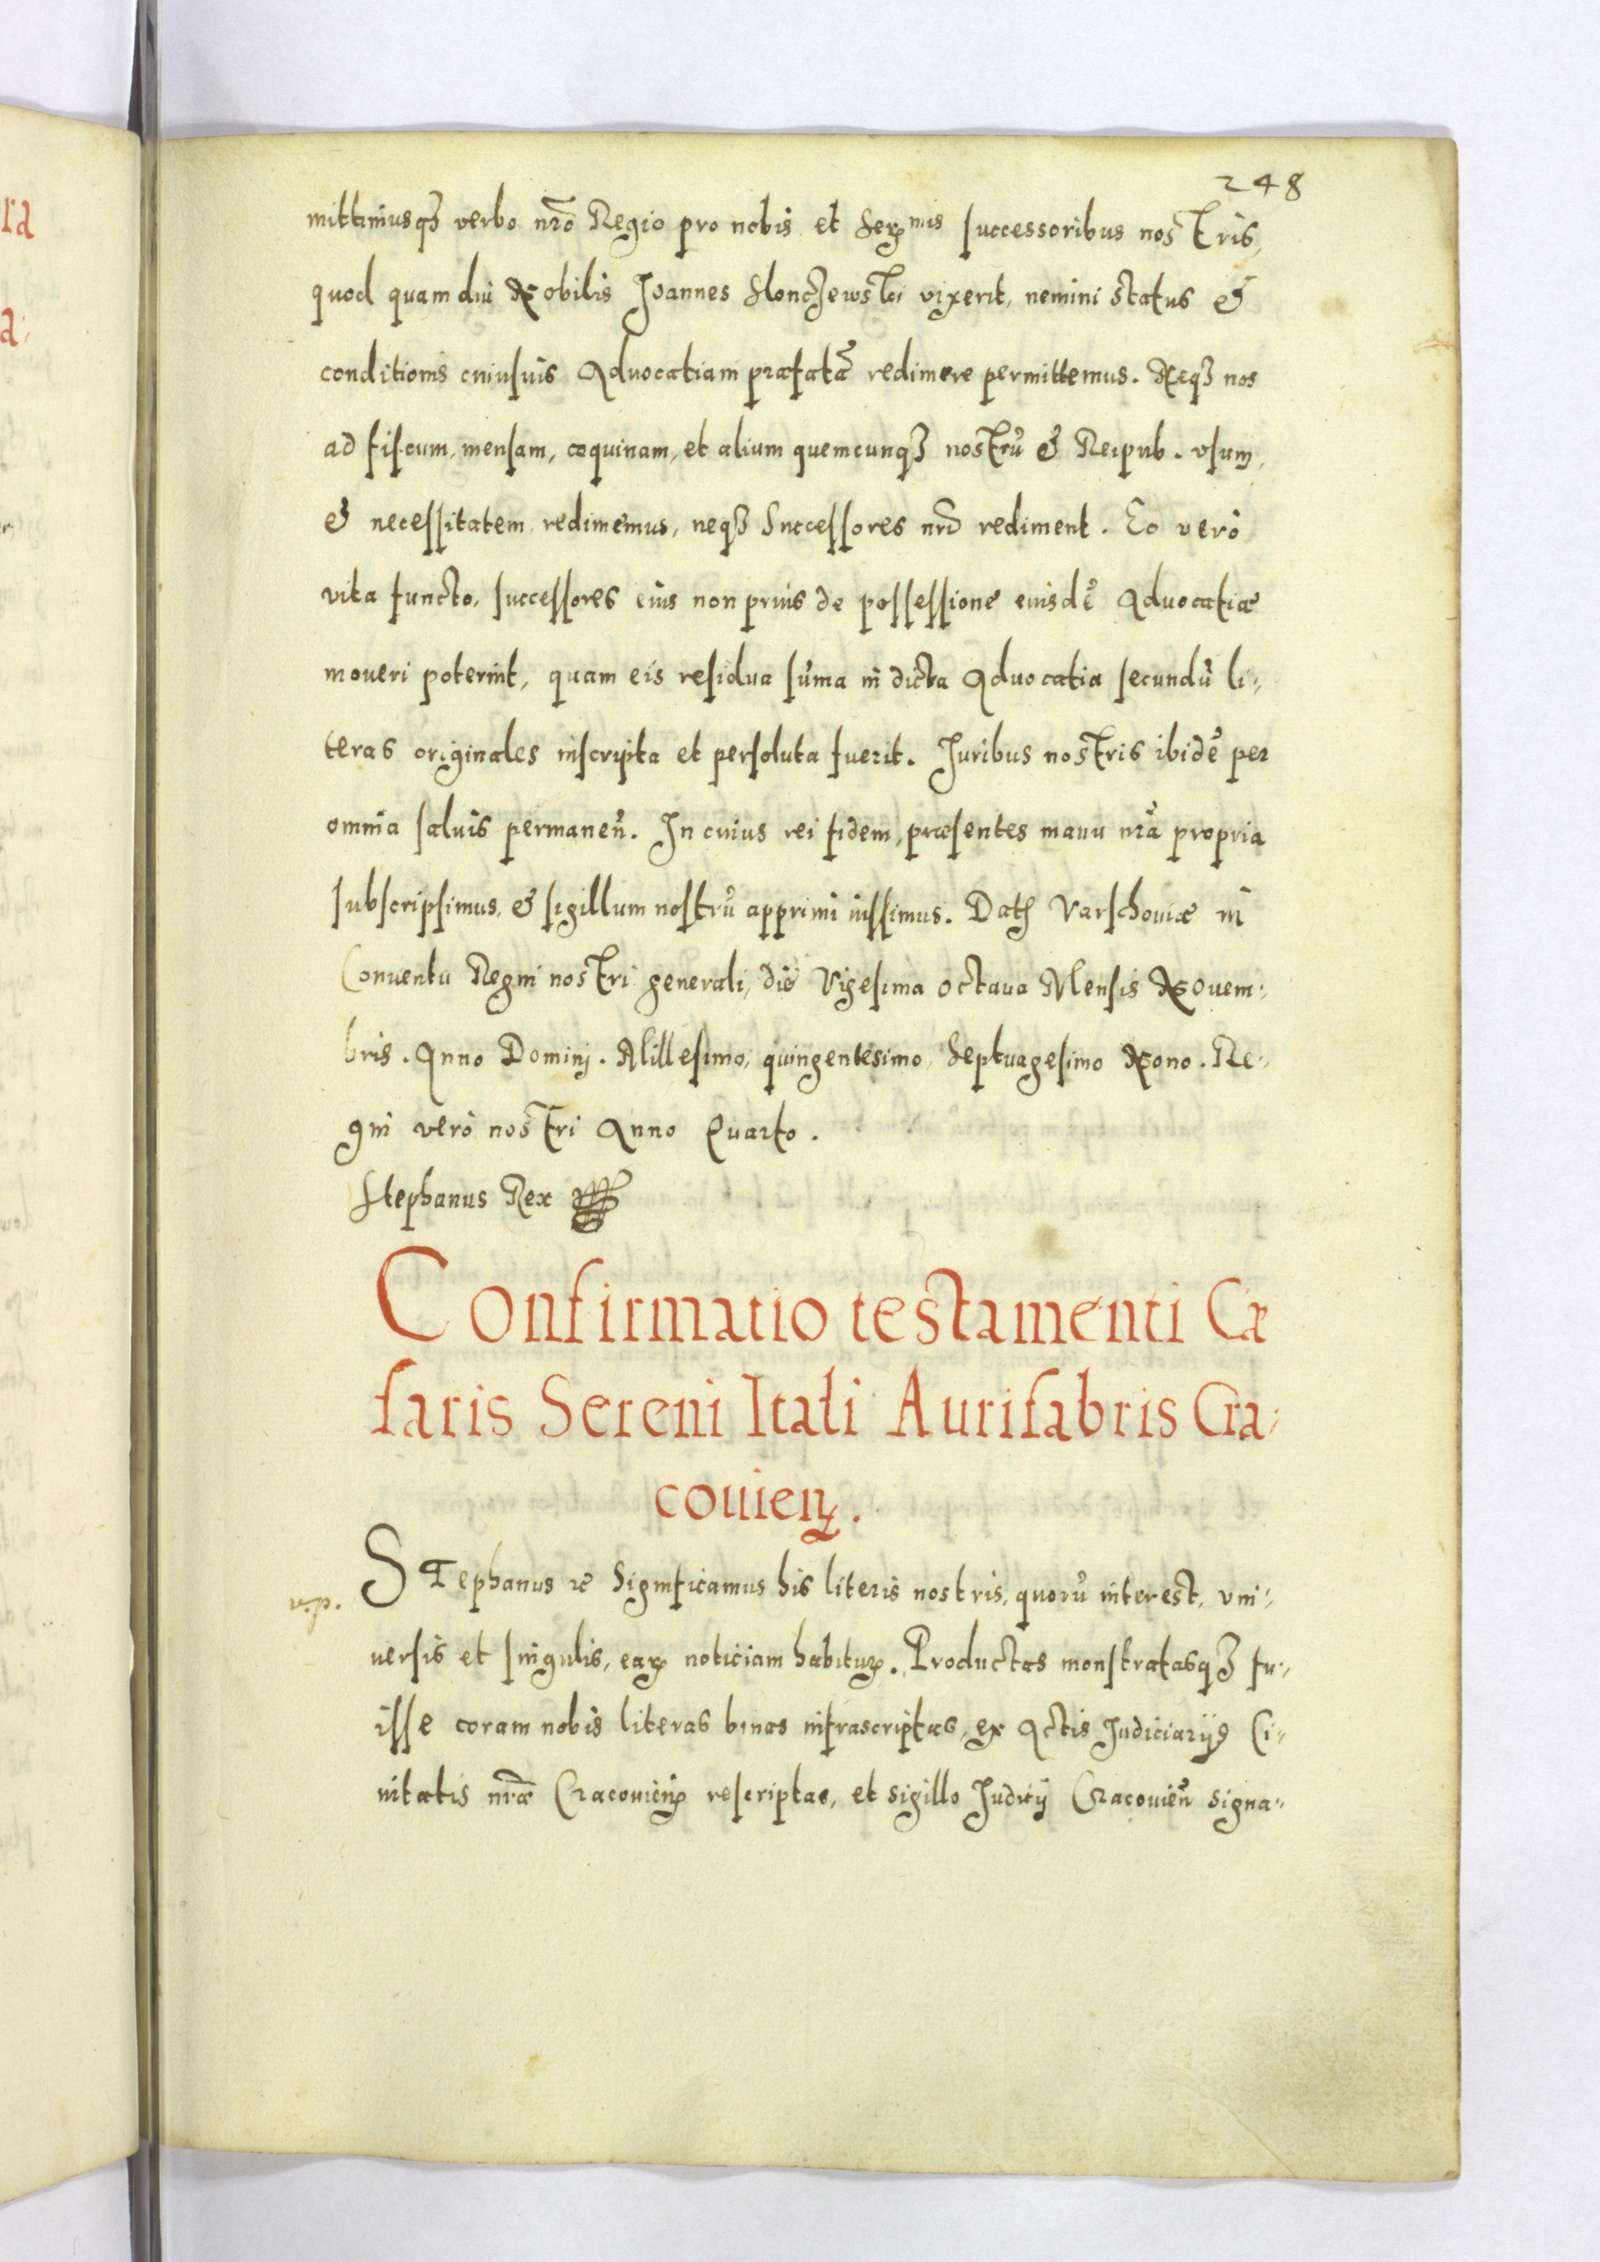 248
mittimusqȝ verbo nr̃o Regio pro nobis et Serꝫmis successoribus nostris,
quod quamdiu Nobilis Joannes Slonczewski vixerit, nemini status &
conditionis cuiusuis Aduocatiam præfatã redimere permittemus. Neqȝ nos
ad fiscum, mensam, coquinam, et alium quemcunqȝ nostrũ & Reipub. vsum,
& necessitatem redimemus, neqȝ Successores nr̃i rediment. Eo verò
vita functo, successores eius non prius de possessione eiusdẽ Aduocatiæ
moueri poterint, quam eis residua sũma in dicta Aduocatia secundũ li-
teras originales inscripta et persoluta fuerit. Juribus nostris ibidẽ per
omnia saluis permaneñ. In cuius rei fidem, præsentes manu nr̃a propria
subscripsimus, & sigillum nostrũ apprimi iussimus. Datꝫ Varschouiæ in
Conuentu Regni nostri generali, die Vigesima octaua Mensis Nouem-
bris. Anno Dominj. Millesimo, quingentesimo, Septuagesimo Nono. Re-
gni verò nostri Anno Quarto.
Stephanus Rex
Confirmatio testamenti Cæ
saris Sereni Itali Aurifabris Cra-
couieꝫ.
v.p.
STephanus ꝛc Significamus his literis nostris, quorũ interest, vni-
uersis et singulis, earꝫ noticiam habiturꝫ. Productas monstratasqȝ fu-
isse coram nobis literas binas infrascriptas, ex Actis Judiciarijs Ci-
uitatis nr̃æ Cracouieñ rescriptas, et sigillo Judicij Cracouieñ signa-